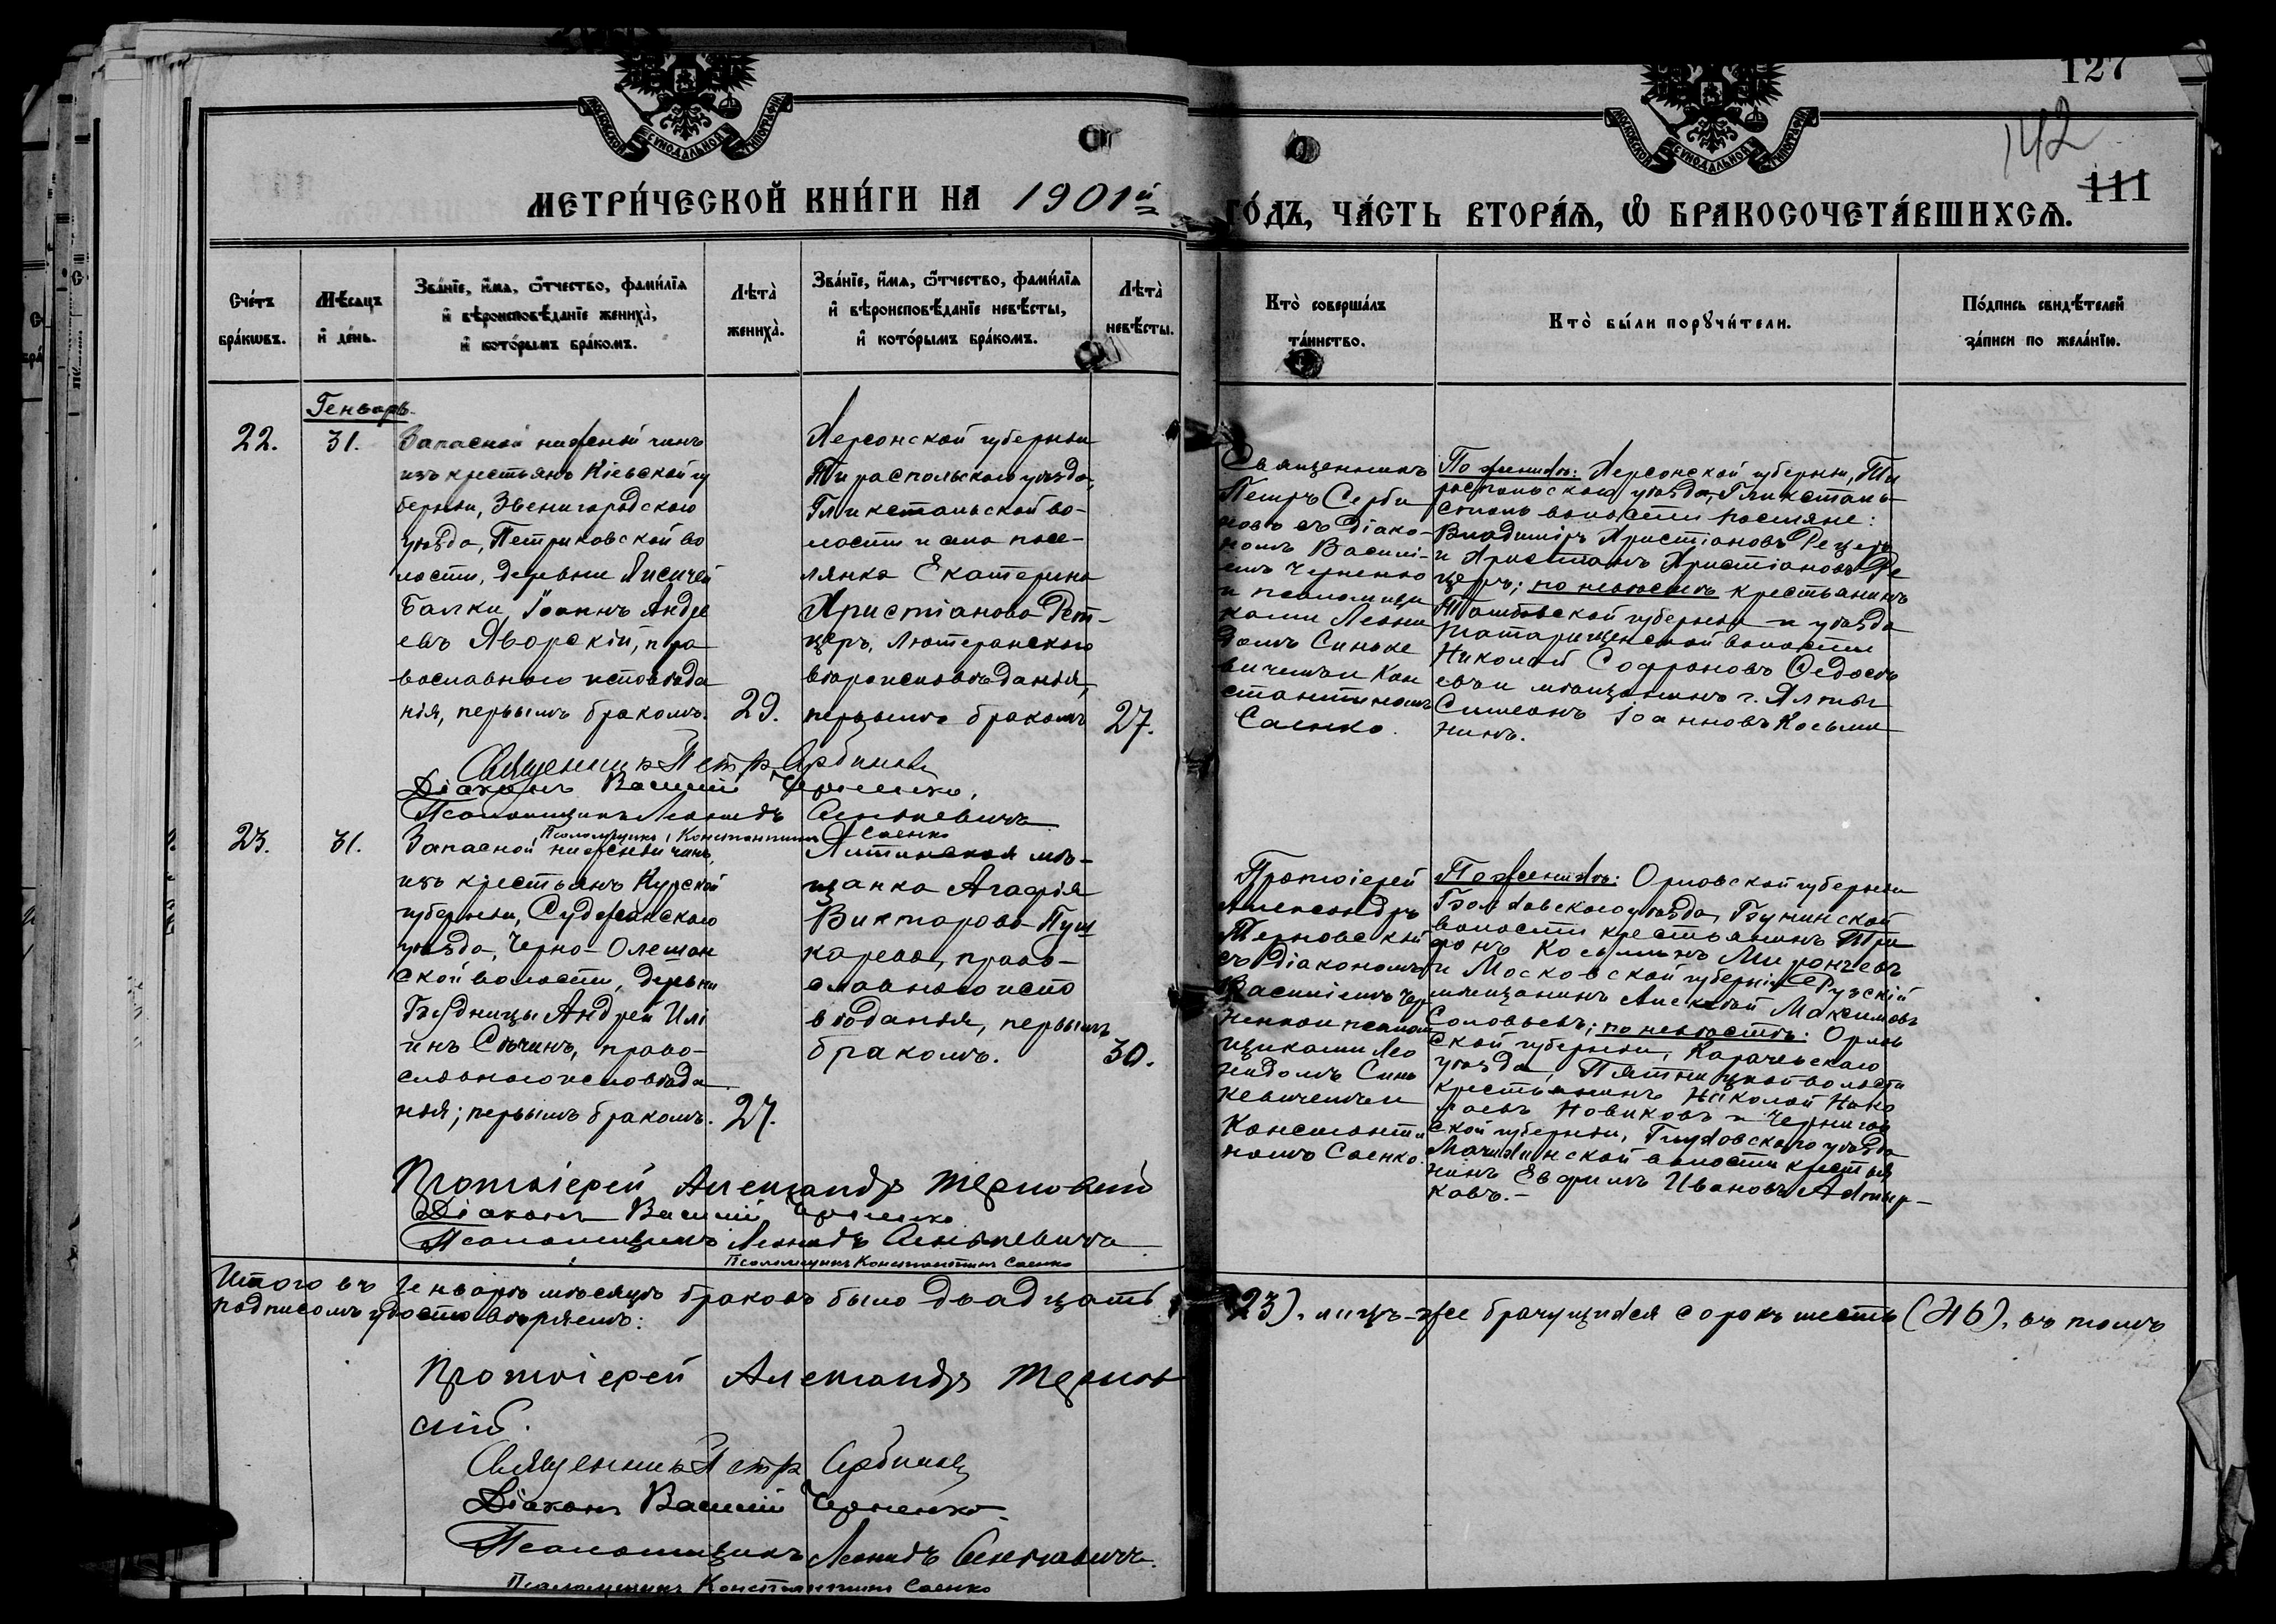 127
142
111
МОСКОВСКОЙ СѴНОДАЛЬНОЙ ТИПОГРАФІИ
МОСКОВСКОЙ СѴНОДАЛЬНОЙ ТИПОГРАФІИ
МЕТРИ́ЧЕСКОЙ КНИ́ГИ НА 1901й
ГО́ДЪ, ЧА́СТЬ ВТОРА́Ѧ, Ѽ БРАКОСОЧЕТА́ВШИХСѦ.
Сче́тъ бра́кѡвъ.
Мѣ́сяцъ и҆ де́нь.
Зва́нїе, и҆́мѧ, ѻ҆́тчество, фами́лїѧ
и҆ вѣроисповѣ́данїе жениха̀,
и҆ кото́рымъ бра́комъ.
Лѣта̀ жениха̀.
Зва́нїе, и҆́мѧ, ѻ҆́тчество, фами́лїѧ
и҆ вѣроисповѣ́данїе невѣ́сты,
и҆ кото́рымъ бра́комъ.
Лѣта̀ невѣ́сты.
Кто̀ соверша́лъ
та́инство.
Кто̀ бы́ли порꙋчи́тели.
По́дпись свидѣ́телей
за́писи по жела́нїю.
Генварь.
22.
31.
Запасной нижній чинъ
изъ крестьянъ Кіевской гу
берніи, Звенигородскаго
уѣзда, Петриковской во
лости, деревни Лисичей
Балки, Іоаннъ Андре
евъ Яворскій, пра
вославнаго исповѣда
нія, первымъ бракомъ.
29.
Херсонской губерніи
Тираспольскаго уѣзда,
Гликстальской во-
лости и села посе-
лянка Екатерина
Христіанова Рет-
церъ, лютеранскаго
вѣроисповѣданія,
первымъ бракомъ
27.
Священникъ
Петръ Серби
новъ съ діако-
номъ Василі-
емъ Черненко
и псаломщи
ками Леони
домъ Синьке
вичемъ и Кон
стантиномъ
Саенко.
По женихѣ: Херсонской губерніи, Ти
распольскаго уѣзда, Гликсталь-
ской волости поселяне:
Владиміръ Христіановъ Рецеръ
и Христіанъ Христіановъ Ре
церъ; по невѣстѣ крестьянинъ
губерніи и уѣзда
волости
Николай Софроновъ Федосѣ
евъ и мѣщанинъ г. Ялты
Симеонъ Іоанновъ Косьми
нинъ.
Священникъ Петръ Сербиновъ
Діаконъ Василій Черненко,
Псаломщикъ Леонидъ Синькевичъ
Псаломщикъ Константинъ Саенко
23.
31.
Запасной нижній чинъ,
изъ крестьянъ Курской
губерніи, Суджанскаго
уѣзда, Черно-Олешан
ской волости, деревни
Будницы Андрей Илі
инъ Сѣчинъ, право-
славнаго исповѣда
нія; первымъ бракомъ.
27.
Ялтинская мѣ-
щанка Агафія
Викторова Пуш
карева, право-
славнаго испо
вѣданія, первымъ
бракомъ.
30.
Протоіерей
Александръ
Терновскій
съ діакономъ
Василіемъ Чер
ненко и псалом
щиками Лео
нидомъ Синь
кевичемъ и
Константи
номъ Саенко.
По женихѣ: Орловской губерніи
Болховскаго уѣзда, Бунинской
волости крестьянинъ Три
фонъ Косьминъ Миронѣевъ
и Московской губерніи Рузскій
мѣщанинъ Алексѣй Максимовъ
Соловьевъ; по невѣстѣ: Орлов
ской губерніи, Карачевскаго
уѣзда, Пятницкой волости
крестьянинъ Николай Нико
лаевъ Новиковъ и Чернигов
ской губерніи, Глуховскаго уѣзда
волости крестья
нинъ Евфимъ Ивановъ
ковъ.-
Протоіерей Александръ Терновскій
Діаконъ Василій Черненко
Псаломщикъ Леонидъ Синькевичъ
Псаломщикъ Константинъ Саенко
Итого въ Генварѣ мѣсяцѣ браковъ было двадцать
(23). лицъ-же брачущихся сорокъ шесть (46), въ томъ
подписомъ удостовѣряемъ:
Протоіерей Александръ Тернов
скій.
Священникъ Петръ Сербиновъ
Діаконъ Василій Черненко.
Псаломщикъ Леонидъ Синькевичъ.
Псаломщикъ Константинъ Саенко